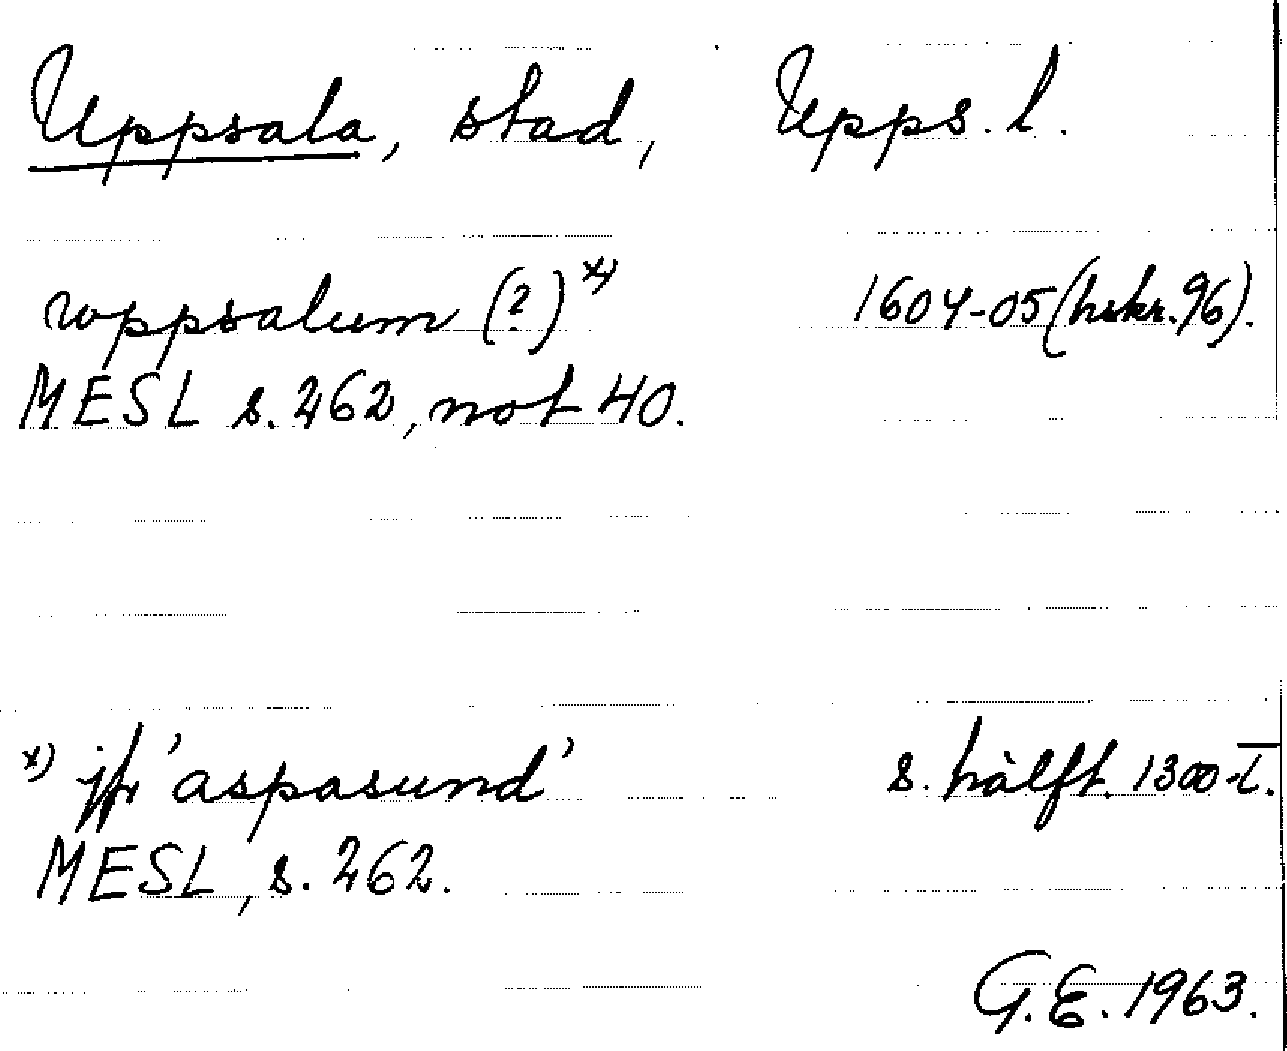 Uppsala, stad, Upps. l.
wppsalum (?) x) 1604-05 (hskr. 96).
MESL s. 262, not 40.
x) jfr 'aspasund' s. hälft. 1300-t.
MESL, s. 262.
G.E. 1963.